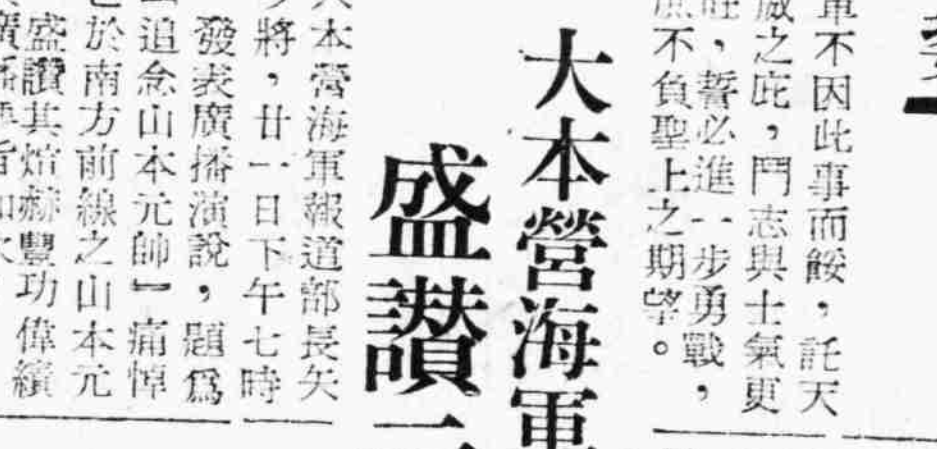 軍不因此事而餒，託天
威之庇，鬥志與士氣更
旺，誓必進一步勇戰，
庶不負聖上之期望。
大本營海軍
盛讚
大本營海軍報道部長矢
將，廿一日下午七時
發表廣播演說，題爲
追念山本元帥』痛悼
於南方前線之山本元
盛讚其煊赫豐功偉績